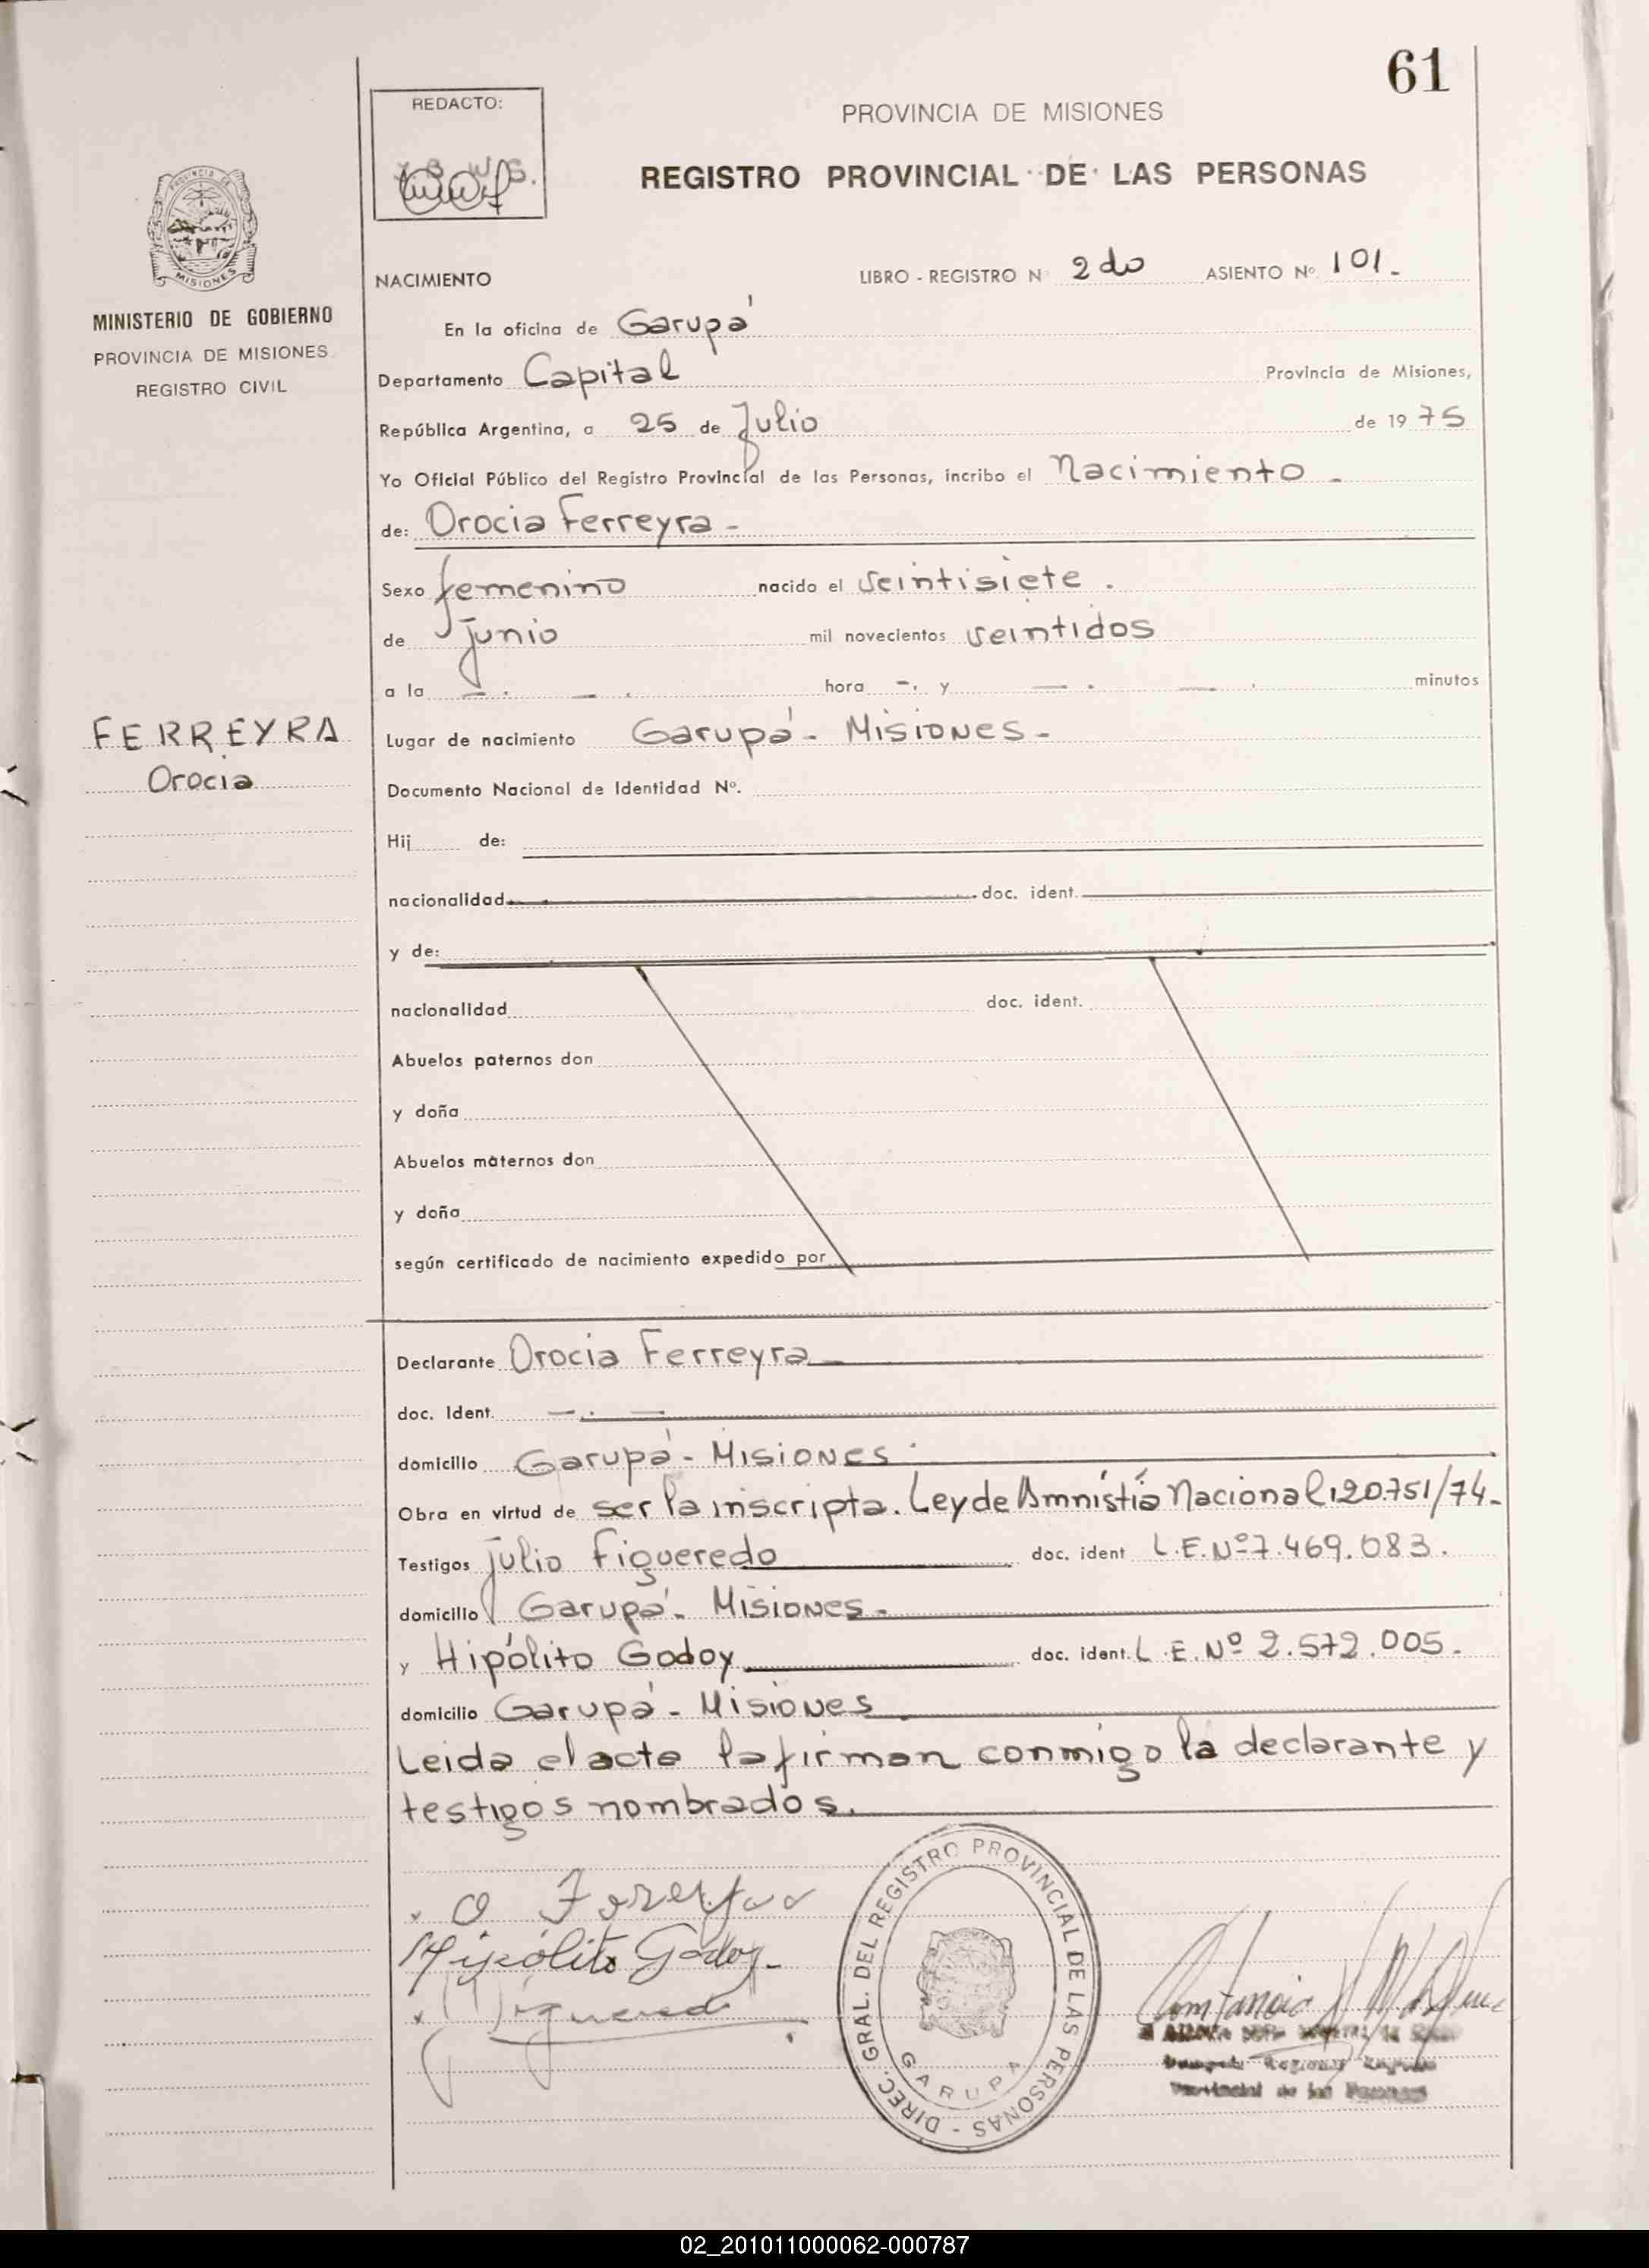 61
REDACTO:
PROVINCIA DE MISIONES
REGISTRO PROVINCIAL DE LAS PERSONAS
PROVINCIA DE
MISIONES
MINISTERIO DE GOBIERNO
PROVINCIA DE MISIONES
REGISTRO CIVIL
NACIMIENTO LIBRO - REGISTRO Nº 2do ASIENTO Nº 101.
En la oficina de Garupá
Departamento Capital Provincia de Misiones,
República Argentina, a 25 de Julio de 1975
Yo Oficial Público del Registro Provincial de las Personas, incribo el Nacimiento -
de: Orocia Ferreyra -
Sexo femenino nacido el veintisiete.
de junio mil novecientos veintidos
a la - . - . hora -. y - . - . minutos
FERREYRA
Orocia
Lugar de nacimiento Garupá - Misiones -
Documento Nacional de Identidad Nº.
Hij de:
nacionalidad doc. ident.
y de:
nacionalidad doc. ident.
Abuelos paternos don
y doña
Abuelos maternos don
y doña
según certificado de nacimiento expedido por
Declarante Orocia Ferreyra
doc. Ident. - . -
domicilio Garupá - Misiones.
Obra en virtud de ser la inscripta. Ley de Amnistía Nacional 20.751/74-
Testigos Julio Figueredo doc. ident L.E. Nº 7.469.083.
domicilio Garupá - Misiones -
y Hipólito Godoy doc. ident. L.E. Nº 2.572.005.
domicilio Garupá - Misiones
Leida el acta la firman conmigo la declarante y
testigos nombrados.
Hipólito Godoy -
J Figueredo
DIREC. GRAL. DEL REGISTRO PROVINCIAL DE LAS PERSONAS -
GARUPA
02_201011000062-000787